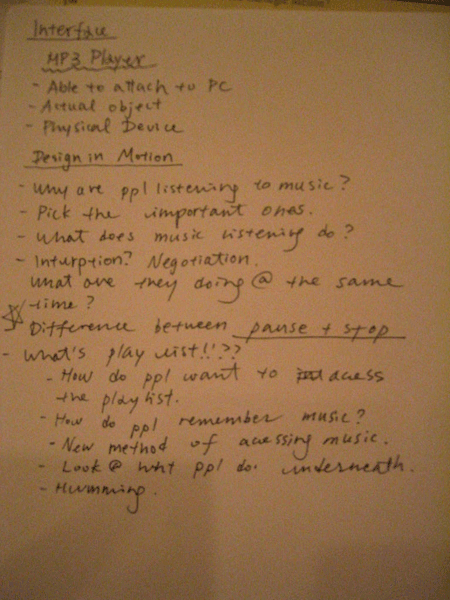 Interface
MP3 Player
- Able to attach to PC
- Actual object
- Physical Device
Design in Motion
- Why are ppl listening to music?
- Pick the important ones.
- What does music listening do?
- Inturption? Negotiation.
What are they doing @ the same
time?
Difference between pause + stop
- What's play list!!??
- How do ppl want to acess
the playlist.
- How do ppl remember music?
- New method of acessing music.
- Look @ wht ppl do. underneath.
- Humming.